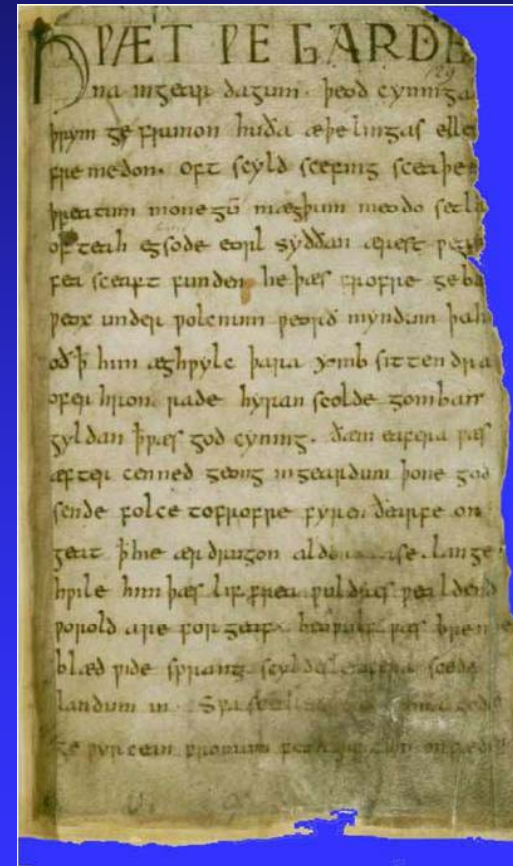 HǷÆT ǷE GARDE
na ingear dagum. þeod cyninga
þrym ge frunon huða æþelingas elle
fremedon. oft scyld scefing sceaþe
þreatum monegū mægþum meodo setla
of teah egsode eorl syððan ærest ƿear
fea sceaft funden he þæs frofre geba
ƿeox under ƿolcnum ƿeorð myndum þah
oð ꝥ him æghƿylc þara ymb sittendra
ofer hron rade hyran scolde gomban
gyldan ꝥ ƿæs god cyning. ðæm eafera ƿæs
æfter cenned geong ingeardum þone god
sende folce tofrofre fyren ðearfe on
geat ꝥ hie ær drugon lange
hƿile him þæs lif frea ƿuldres ƿealdend
ƿorold are for geaf. beoƿulf ƿæs breme
blæd ƿide sprang scyldes eafera scede
landum in. Sƿa
ge ƿyrcean fromum